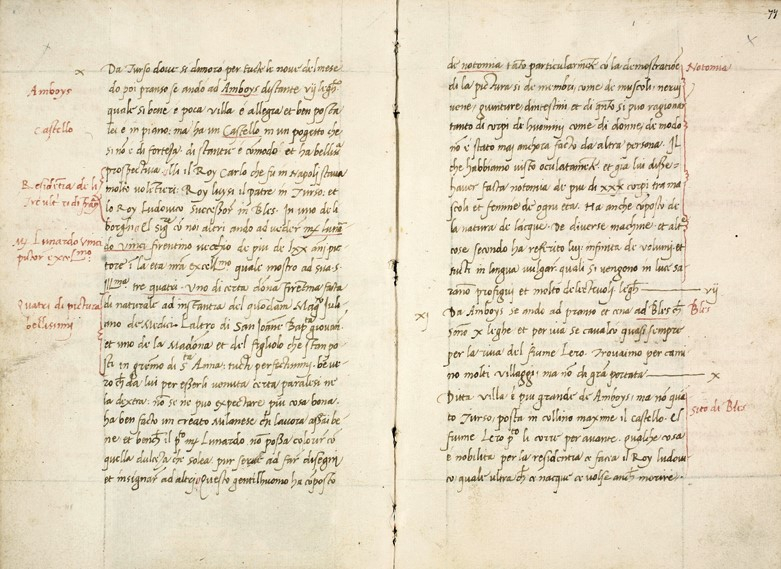 74
Da Turso dove si dimorò per tucte le nove del mese
Amboys
do poi pranso se andò ad Amboys distante vij leghe
quale si bene è poca villa è allegra et ben posta
Castello
lei è in piano, ma ha un Castello in un pogetto che
si non è di forteza di stantie è comodo et ha bella
prospectiva. Illi il Roy Carlo che fu in Napoli stava
molto volentieri: Roy luysi il patre in Turso, et
lo Roy Ludovico successor in Bles. In uno de li
borghi el sig.r cò noi altri andò ad veder m.r lunar
My Lunardo vinci
do vinci firentino vecchio de più de lxx anni pic
pictor excel.mo
tore in la età nra excell.mo quale mostrò ad sua S.
Quatri di pictura
Ill.ma tre quatri. Uno di certa dona firentina facta
bellissimi
di naturale ad instantia del quondam Mag.co Jula
ano de Medici. L'altro di San Joane Bap.ta giovan
et uno de la Madona et del figliolo che stan po
sti in gremo di s.ta Anna, tucti perfectissimi, be ve
ro che da lui per esserli venuta certa paralesi ne
la dextra, nò se ne può expectare più cosa bona.
ha ben facto un creato milanese chi lavora assai be
ne. et benche il p.to m.r Lunardo nò possa colorir cò
quella dulceza che solea, pur serve ad far disegni
et insignar ad altri. Questo gentilhuomo ha còposto
de notomia tàto particularmète cò la demostratiòe
Notomia
di la pictura sì de membri, come de muscoli, nervi,
vene, giunture, d'intestini et di quàto si può ragionar
tanto di corpi de huomini come di donne, de modo
nò è stato mai anchora facto da altra persona. Il
che habbiamo visto oculatamète et già lui disse
haver facta notomia de più de xxx corpi tra ma
scoli et femine de ogni età. Ha anche còposto de
la natura de l'acque. De diverse machine et alt.e
cose secondo ha referito lui infinità de volumi et
tucti in lingua vulgar. quali si vengono in luce sa
ranò profigui et molto delectevoli leghe vij
xj
Da Amboys se andò ad pranso et cena ad Bles che
Bles
sonò x leghe et per via se cavalcò quasi sempre
per la riva del fiume Lero. Trovaimo per cami
no molti villaggi, ma nò di grà portata x
Sito di Bles
Ditta villa è più grande de Amboys, ma nò quà
to Turso, posta in collina maxime il castello. el
fiume Lero p.to li corre per avante.
e nobilità per la residentia ce facea il Roy ludovi
co quale ultra che ce nacque ce volse anche morire.